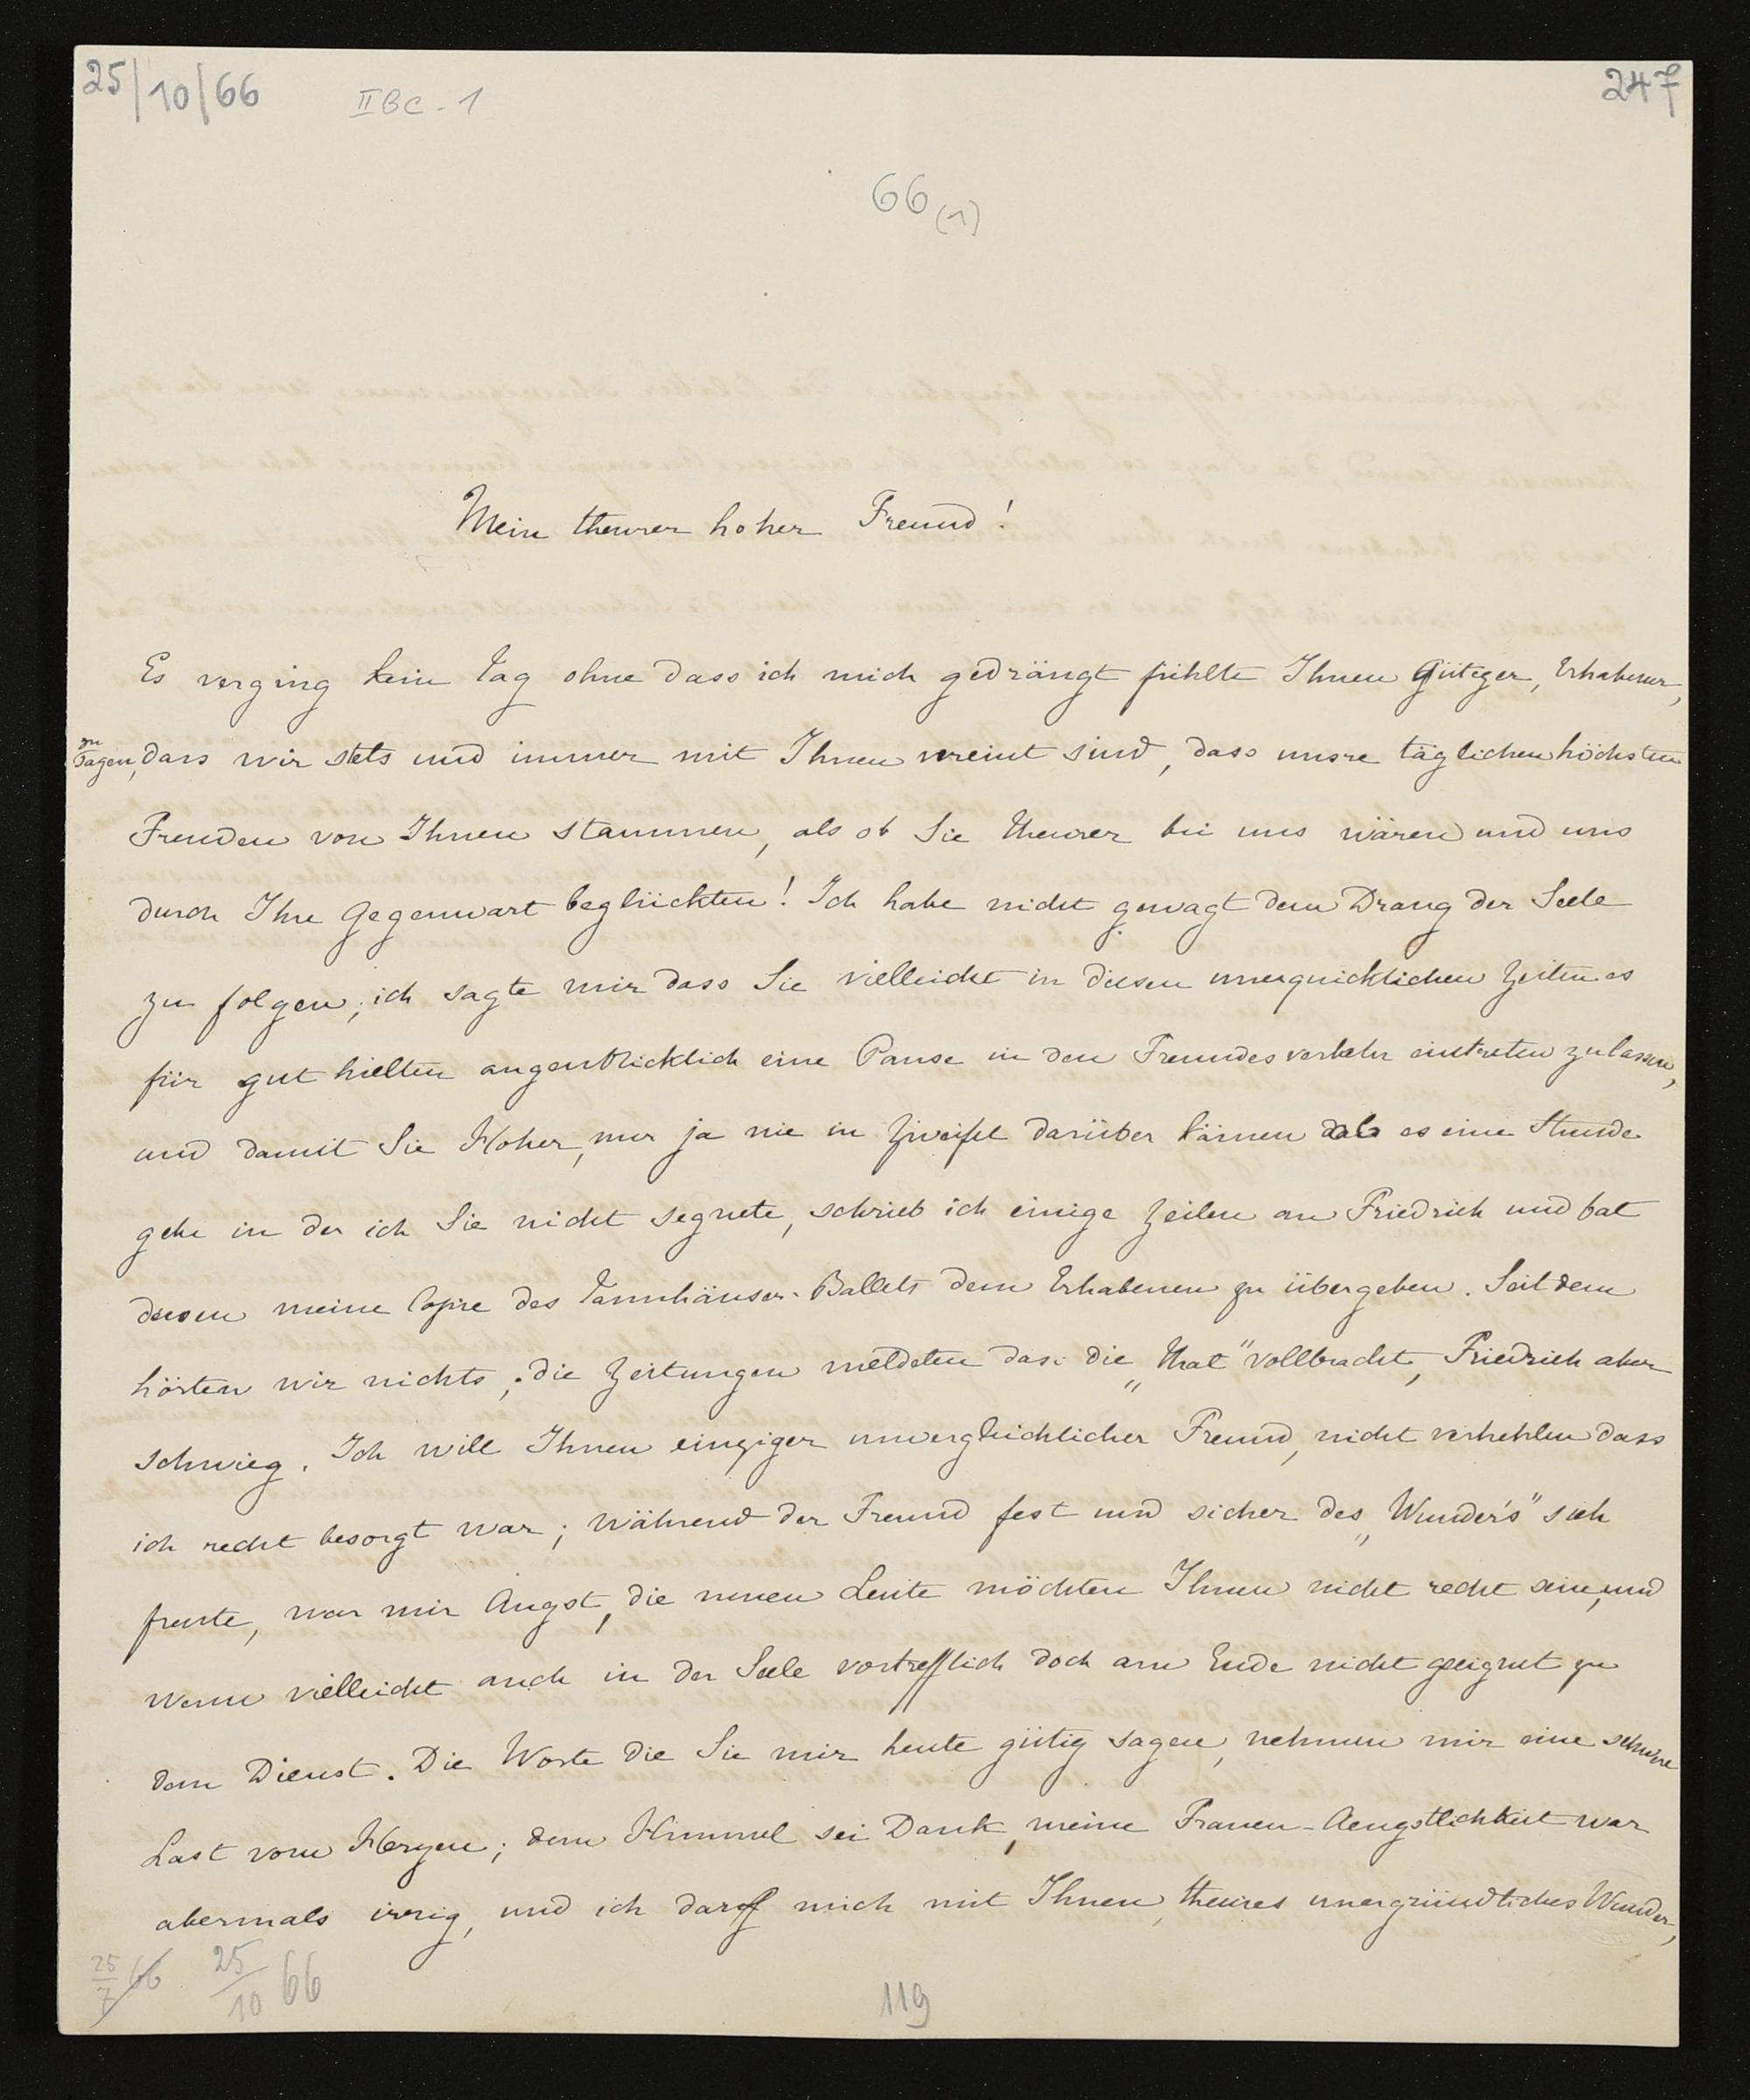 25/10/66 IIBC-1 247
66 (1)
Mein theurer hoher Freund!
Es verging kein Tag ohne dass ich mich gedrängt fühlte Ihnen Gütiger, Erhabener,
zu sagen, dass wir stets und immer mit Ihnen vereint sind, dass unsre täglichen höchsten
Freuden von Ihnen stammen, als ob Sie theurer bei uns wären und uns
durch Ihre Gegenwart beglückten! Ich habe nicht gewagt dem Drang der Seele
zu folgen; ich sagte mir dass Sie vielleicht in diesen unerquicklichen Zeiten es
für gut hielten augenblicklich eine Pause in den Freundesverkehr eintreten zu lassen,
und damit Sie Hoher, nur ja nie in Zweifel darüber kämen dass es eine Stunde
gebe in der ich Sie nicht segnete, schrieb ich einige Zeilen an Friedrich und bat
diesen meine Copie des Tannhäuser-Ballets dem Erhabenen zu übergeben. Seitdem
hörten wir nichts; die Zeitungen meldeten dass die „That" vollbracht, Friedrich aber
schwieg. Ich will Ihnen einziger unvergleichlicher Freund, nicht verhehlen dass
ich recht besorgt war; während der Freund fest und sicher des „Wunder's" sich
freute, war mir Angst, die neuen Leute möchten Ihnen nicht recht sein, und
wenn vielleicht auch in der Seele vortrefflich doch am Ende nicht geeignet zu
dem Dienst. Die Worte die Sie mir heute gütig sagen, nehmen mir eine schwere
Last vom Herzen; dem Himmel sei Dank, meine Frauen-Aengstlichkeit war
abermals irrig, und ich darf mich mit Ihnen, theures unergründliches Wunder,
25/7 66 25/10 66
119